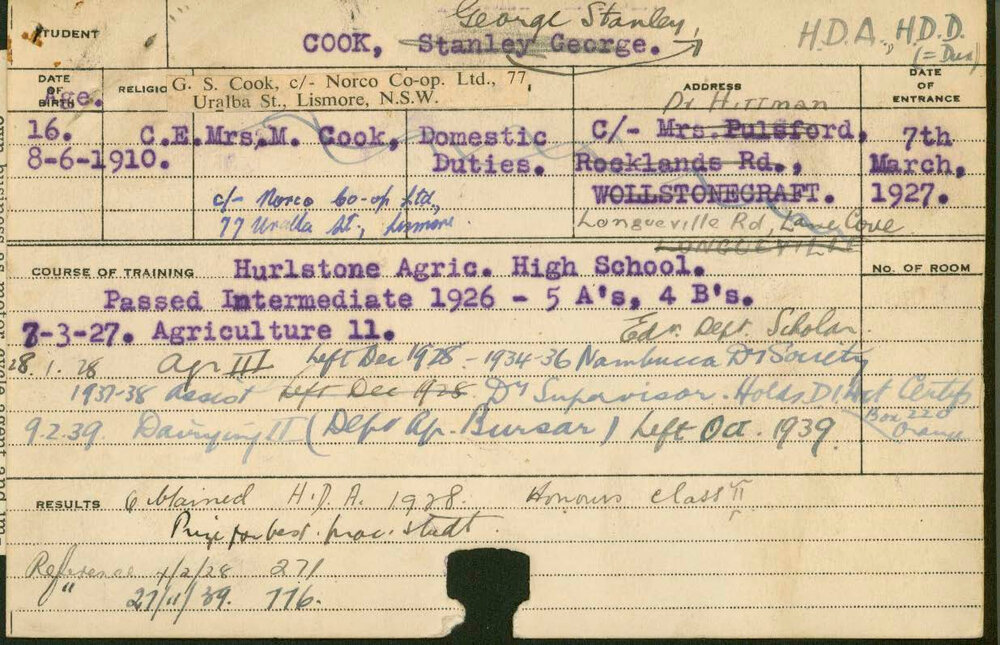 George Stanley
STUDENT COOK, Stanley George. H.D.A., H.D.D.
(= Dux)
DATE OF BIRTH RELIGIO G. S. Cook, c/- Norco Co-op. Ltd., 77 ADDRESS DATE OF ENTRANCE
Age. Uralba St., Lismore, N.S.W. Dr Hittman
16. C.E. Mrs. M. Cook, Domestic C/- Mrs. Pulsford, 7th
8-6-1910. Duties. Rocklands Rd., March,
c/- Norco Co-op Ltd, WOLLSTONECRAFT. 1927.
77 Uralla St., Lismore Longueville Rd, Lane Cove
LONGUEVILLE
COURSE OF TRAINING Hurlstone Agric. High School. NO. OF ROOM
Passed Intermediate 1926 - 5 A's, 4 B's.
7-3-27. Agriculture 11. Edn. Dept. Scholar.
28.1.28 Agr III Left Dec 1928 - 1934-36 Nambucca Dy Society
1937-38 Assist Left Dec 1928 Dy Supervisor. Holds D I Certifs
9.2.39 Dairying II (Dept Ag. Bursar) Left Oct. 1939 Box 220
Orange
RESULTS Obtained H.D.A. 1928. Honours class II
Prize for best prac. studt.
Reference 1/2/28 271
" 27/11/39. 776.